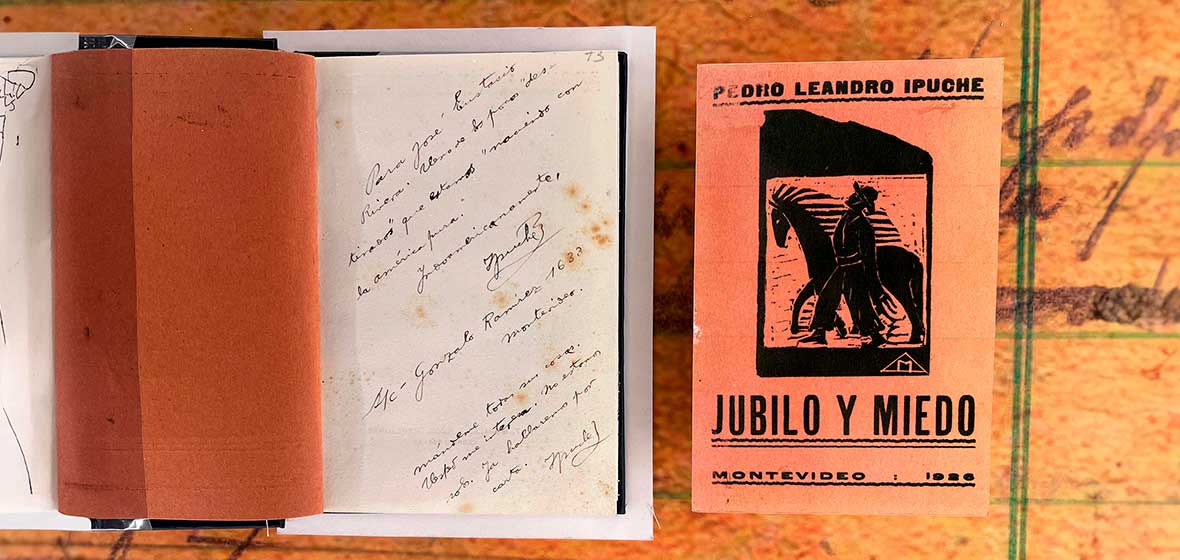 13
Para José Eustasio
Rivera. Uno de los pocos "des-
tinados" que estamos "naciendo con
la américa pura."
Indoamericanamente,
Ipuche
S/c - Gonzalo Ramírez 1633
Montevideo.
mándeme todas sus cosas.
Usted me interesa. No estamos
solos. Ya hablaremos por
carta. Ipuche
PEDRO LEANDRO IPUCHE
M
JUBILO Y MIEDO
MONTEVIDEO : 1926